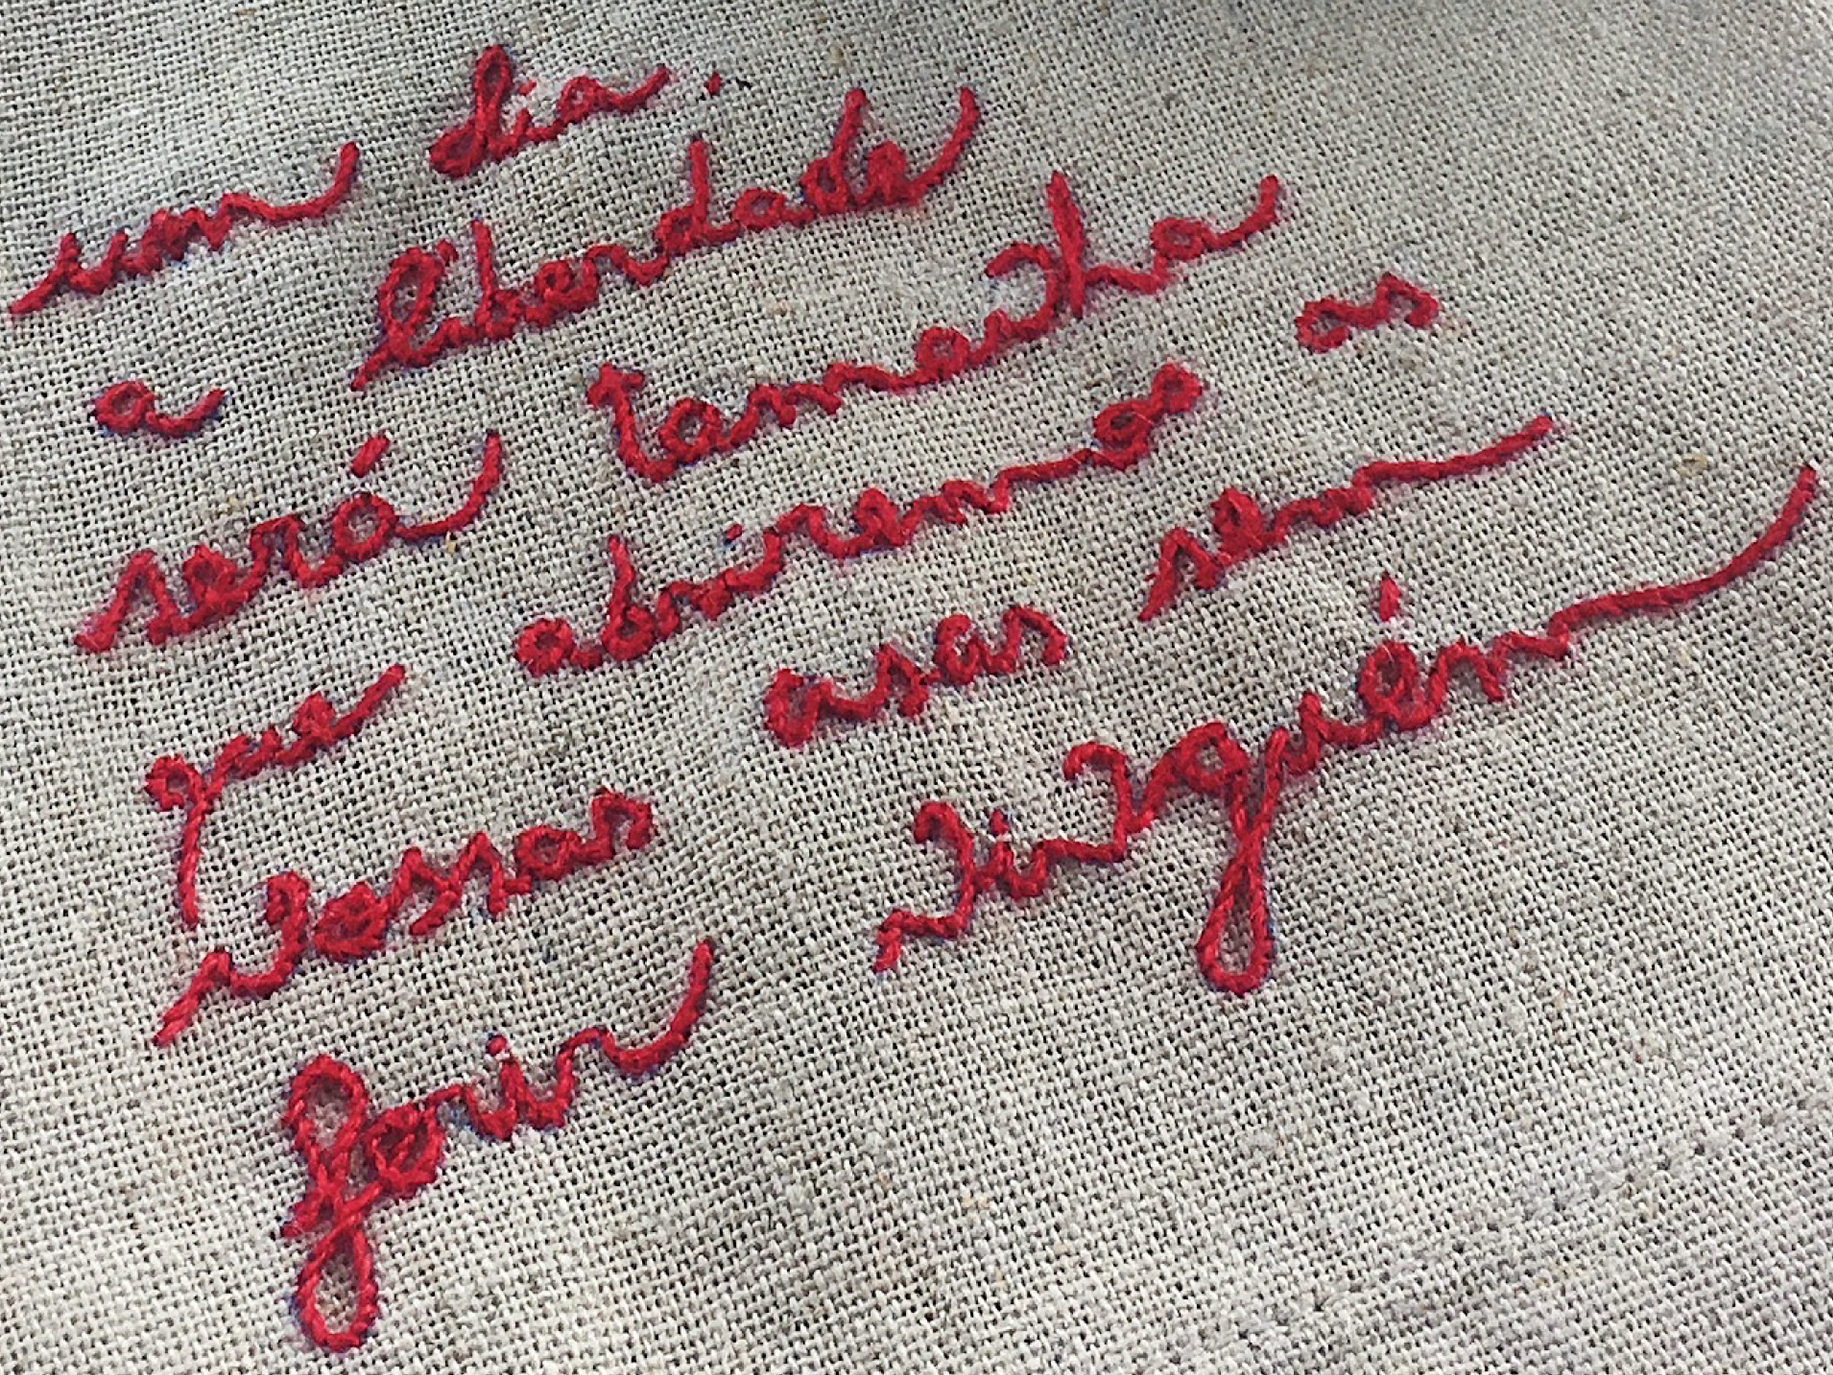 um dia.
a liberdade
será tamanha
que abriremos as
nossas asas sem
ferir ninguém